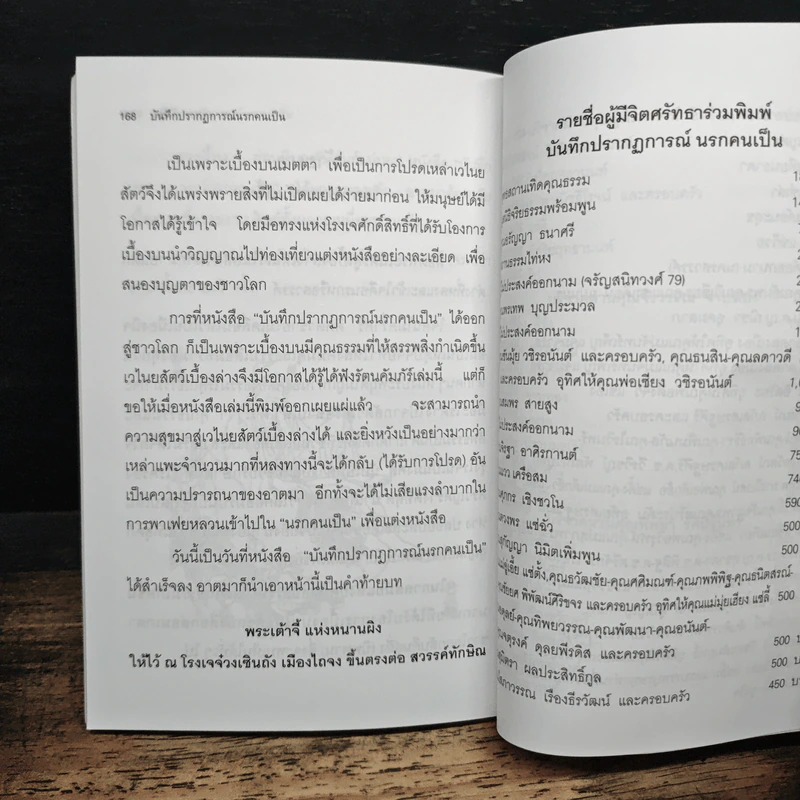 168 บันทึกปรากฏการณ์นรกคนเป็น
เป็นเพราะเบื้องบนเมตตา เพื่อเป็นการโปรดเหล่าเวไนย
สัตว์จึงได้แพร่งพรายสิ่งที่ไม่เปิดเผยได้ง่ายมาก่อน ให้มนุษย์ได้มี
โอกาสได้รู้เข้าใจ โดยมือทรงแห่งโรงเจศักดิ์สิทธิ์ที่ได้รับโองการ
เบื้องบนนำวิญญาณไปท่องเที่ยวแต่งหนังสืออย่างละเอียด เพื่อ
สนองบุญตาของชาวโลก
การที่หนังสือ “บันทึกปรากฏการณ์นรกคนเป็น” ได้ออก
สู่ชาวโลก ก็เป็นเพราะเบื้องบนมีคุณธรรมที่ให้สรรพสิ่งกำเนิดขึ้น
เวไนยสัตว์เบื้องล่างจึงมีโอกาสได้รู้ได้ฟังรัตนคัมภีร์เล่มนี้ แต่ก็
ขอให้เมื่อหนังสือเล่มนี้พิมพ์ออกเผยแผ่แล้ว จะสามารถนำ
ความสุขมาสู่เวไนยสัตว์เบื้องล่างได้ และยิ่งหวังเป็นอย่างมากว่า
เหล่าแพะจำนวนมากที่หลงทางนี้จะได้กลับ (ได้รับการโปรด) อัน
เป็นความปรารถนาของอาตมา อีกทั้งจะได้ไม่เสียแรงลำบากใน
การพาเฟยหลวนเข้าไปใน “นรกคนเป็น” เพื่อแต่งหนังสือ
วันนี้เป็นวันที่หนังสือ “บันทึกปรากฏการณ์นรกคนเป็น”
ได้สำเร็จลง อาตมาก็นำเอาหน้านี้เป็นคำท้ายบท
พระเต้าจี้ แห่งหนานผิง
ให้ไว้ ณ โรงเจจ๋วงเซินถัง เมืองไถจง ขึ้นตรงต่อ สวรรค์ทักษิณ
รายชื่อผู้มีจิตศรัทธาร่วมพิมพ์
บันทึกปรากฏการณ์ นรกคนเป็น
สถานเทิดคุณธรรม
จริยธรรมพร้อมพูน
ธัญญา ธนาศรี
ธรรมไท่หง
ประสงค์ออกนาม (จรัญสนิทวงศ์ 79)
แพรเทพ บุญประมวล
ประสงค์ออกนาม
วชิรอนันต์ และครอบครัว, คุณธนสิน-คุณลดาวดี
และครอบครัว อุทิศให้คุณพ่อเซียง วชิรอนันต์
สายสูง
ประสงค์ออกนาม
อาศิรกานต์ 75
เครือสม 74
เชิงชวโน 590
แซ่อั่ว 500
กัญญา นิมิตเพิ่มพูน 500
แซ่ตั้ง,คุณธวัฒชัย-คุณศศิมณฑ์-คุณภพพิพิฐ-คุณธนิตสรณ์-
พิพัฒน์ศิริขจร และครอบครัว อุทิศให้คุณแม่มุ่ยเฮียง แซ่ลี้ 500
-คุณทิพยวรรณ-คุณพัฒนา-คุณอนันต์-
ดุลยพีรดิส และครอบครัว
ผลประสิทธิ์กูล 500 บ
เรืองธีรวัฒน์ และครอบครัว 450 บา